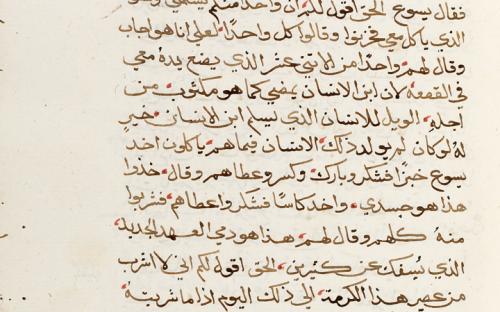 فقال يسوع الحق اقول لكم ان واحد منكم يسلمني وهو
الذي ياكل معي فحزنوا وقالوا كل واحدا لعلي انا هو اجاب
وقال لهم واحدا من الاثني عشر الذي يضع يده معي
في القصعة لان ابن الانسان يمضي كما هو مكتوب من
اجله الويل للانسان الذي يسلم ابن الانسان خير
له لو كان لم يولد ذلك الانسان فيما هم ياكلون اخد
يسوع خبزا فشكر وبارك وكسر وعطاهم وقال خذوا
هذا هو جسدي واخد كاسا فشكر واعطاهم فشربوا
منه كلهم وقال لهم هذا هو دمي العهد الجديد
الذي يسفك عن كثيرين الحق اقول لكم اني لا اشرب
من عصير هذا الكرمة الي ذلك اليوم اذا ما شربته